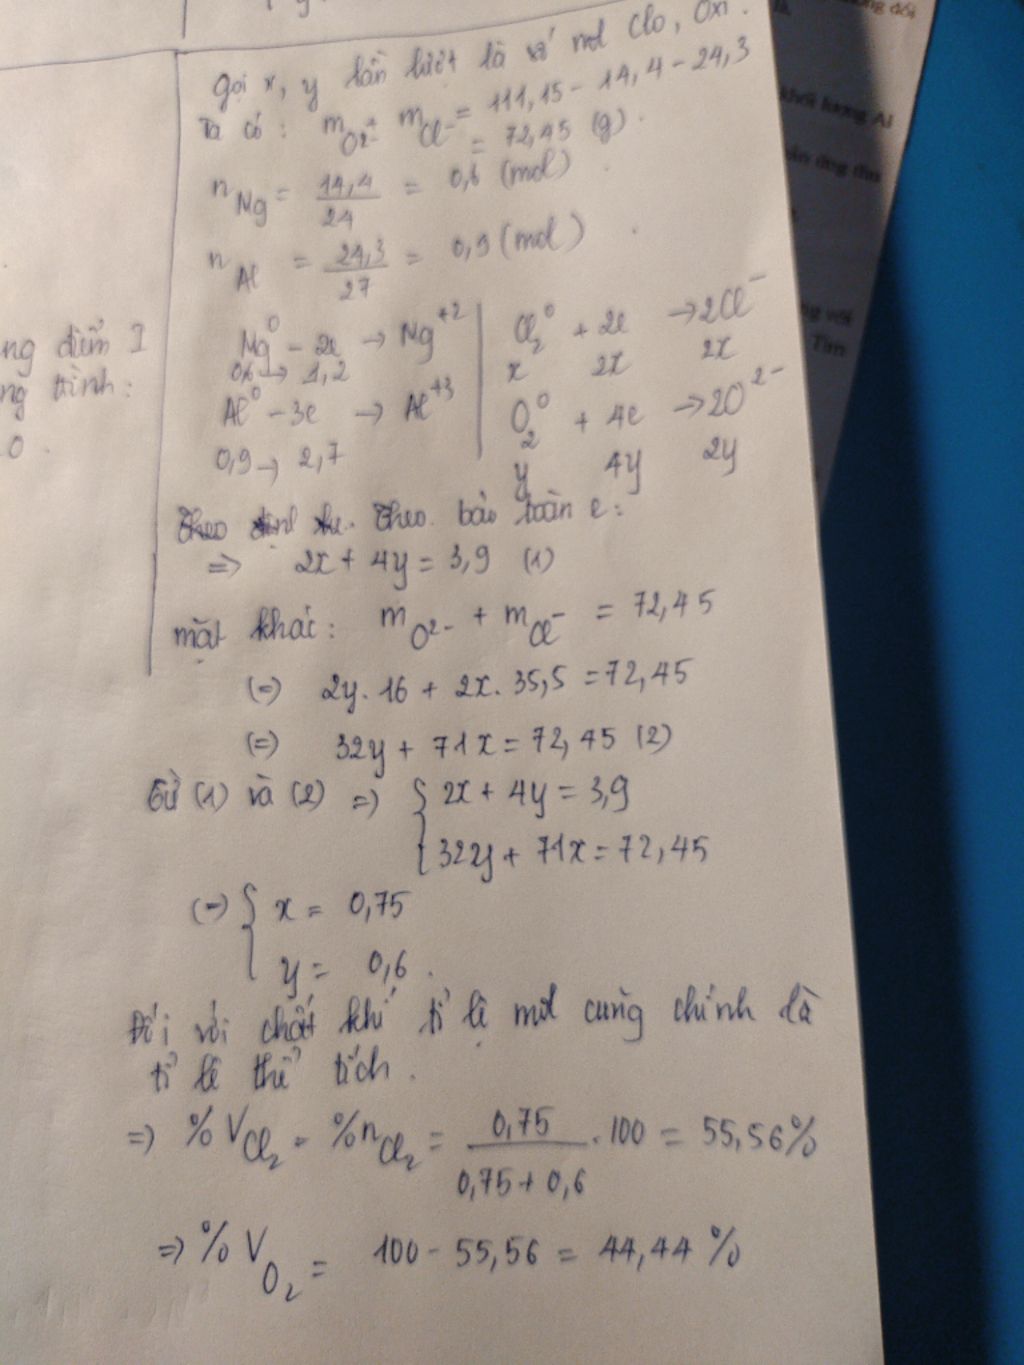 gọi x, y lần lượt là số mol Clo, Oxi.
Ta có: mO2- + mCl- = 111,15 - 14,4 - 24,3
= 72,45 (g).
nMg = 14,4/24 = 0,6 (mol)
nAl = 24,3/27 = 0,9 (mol)
Mg⁰ - 2e → Mg⁺² | Cl₂⁰ + 2e → 2Cl⁻
0,6 → 1,2 | x 2x 2x
Al⁰ - 3e → Al⁺³ | O₂⁰ + 4e → 2O²⁻
0,9 → 2,7 | y 4y 2y
Theo bảo toàn e:
=> 2x + 4y = 3,9 (1)
mặt khác: mO²⁻ + mCl⁻ = 72,45
(=) 2y. 16 + 2x. 35,5 = 72,45
(=) 32y + 71x = 72,45 (2)
Từ (1) và (2) => { 2x + 4y = 3,9
32y + 71x = 72,45
(=) { x = 0,75
y = 0,6.
Đối với chất khí tỉ lệ mol cũng chính là
tỉ lệ thể tích.
=> %VCl₂ = %nCl₂ = 0,75/(0,75 + 0,6) . 100 = 55,56%
=> %VO₂ = 100 - 55,56 = 44,44 %
ng điểm I
ng trình:
0.
khối lượng Al
ng với
Tìm